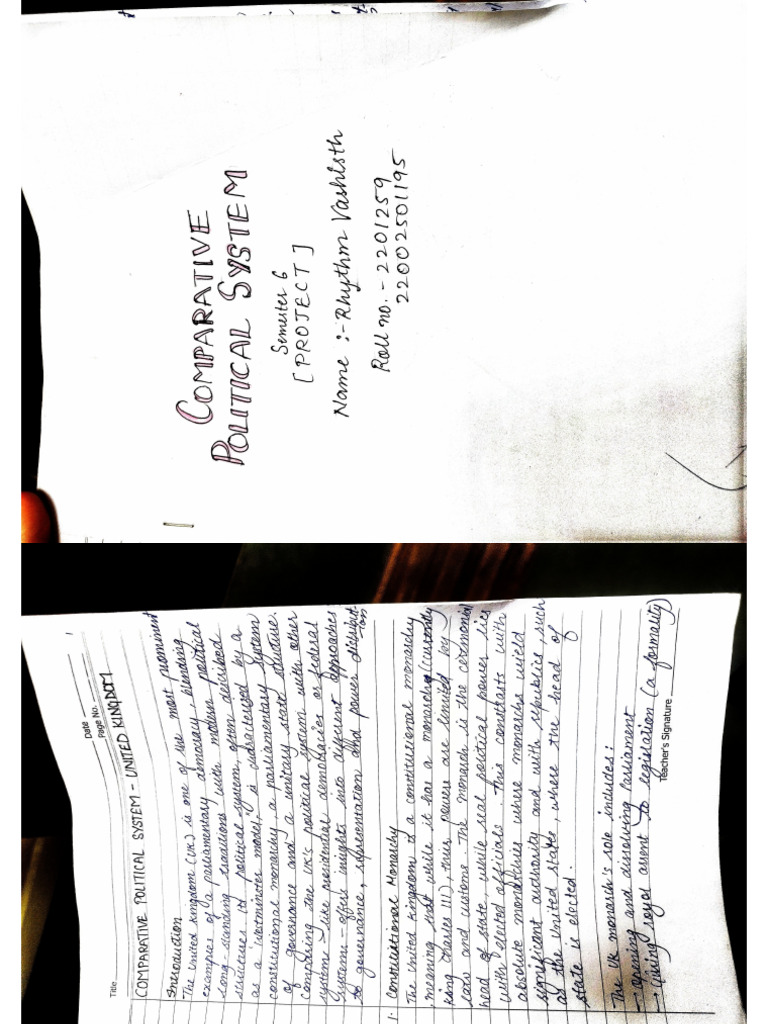 COMPARATIVE
POLITICAL SYSTEM
Semester 6
[PROJECT]
Name :- Rhythm Vashisth
Roll no. - 2201259
22002501195
Date
Page No.
1
Title
COMPARATIVE POLITICAL SYSTEM - UNITED KINGDOM
Introduction
The United Kingdom (UK) is one of the most prominent
examples of a parliamentary democracy, blending
long-standing traditions with modern political
structures. Its political system, often described
as a "westminster model," is characterised by a
constitutional monarchy, a parliamentary system
of governance and a unitary state structure.
Comparing the UK's political system with other
systems - like presidential democracies or federal
systems - offers insights into different approaches
to governance, representation and power distribut-
ion
1. Constitutional Monarchy
The United Kingdom is a constitutional monarchy
meaning that while it has a monarch (currently
King Charles III), their powers are limited by
law and customs. The monarch is the ceremonial
head of state, while real political power lies
with elected officials. This constrasts with
absolute monarchies where monarchs wield
significant authority and with republics, such
as the United States, where the head of
state is elected.
The UK monarch's role includes:
→ Opening and dissolving Parliament
→ Giving royal assent to legislation (a formality)
Teacher's Signature